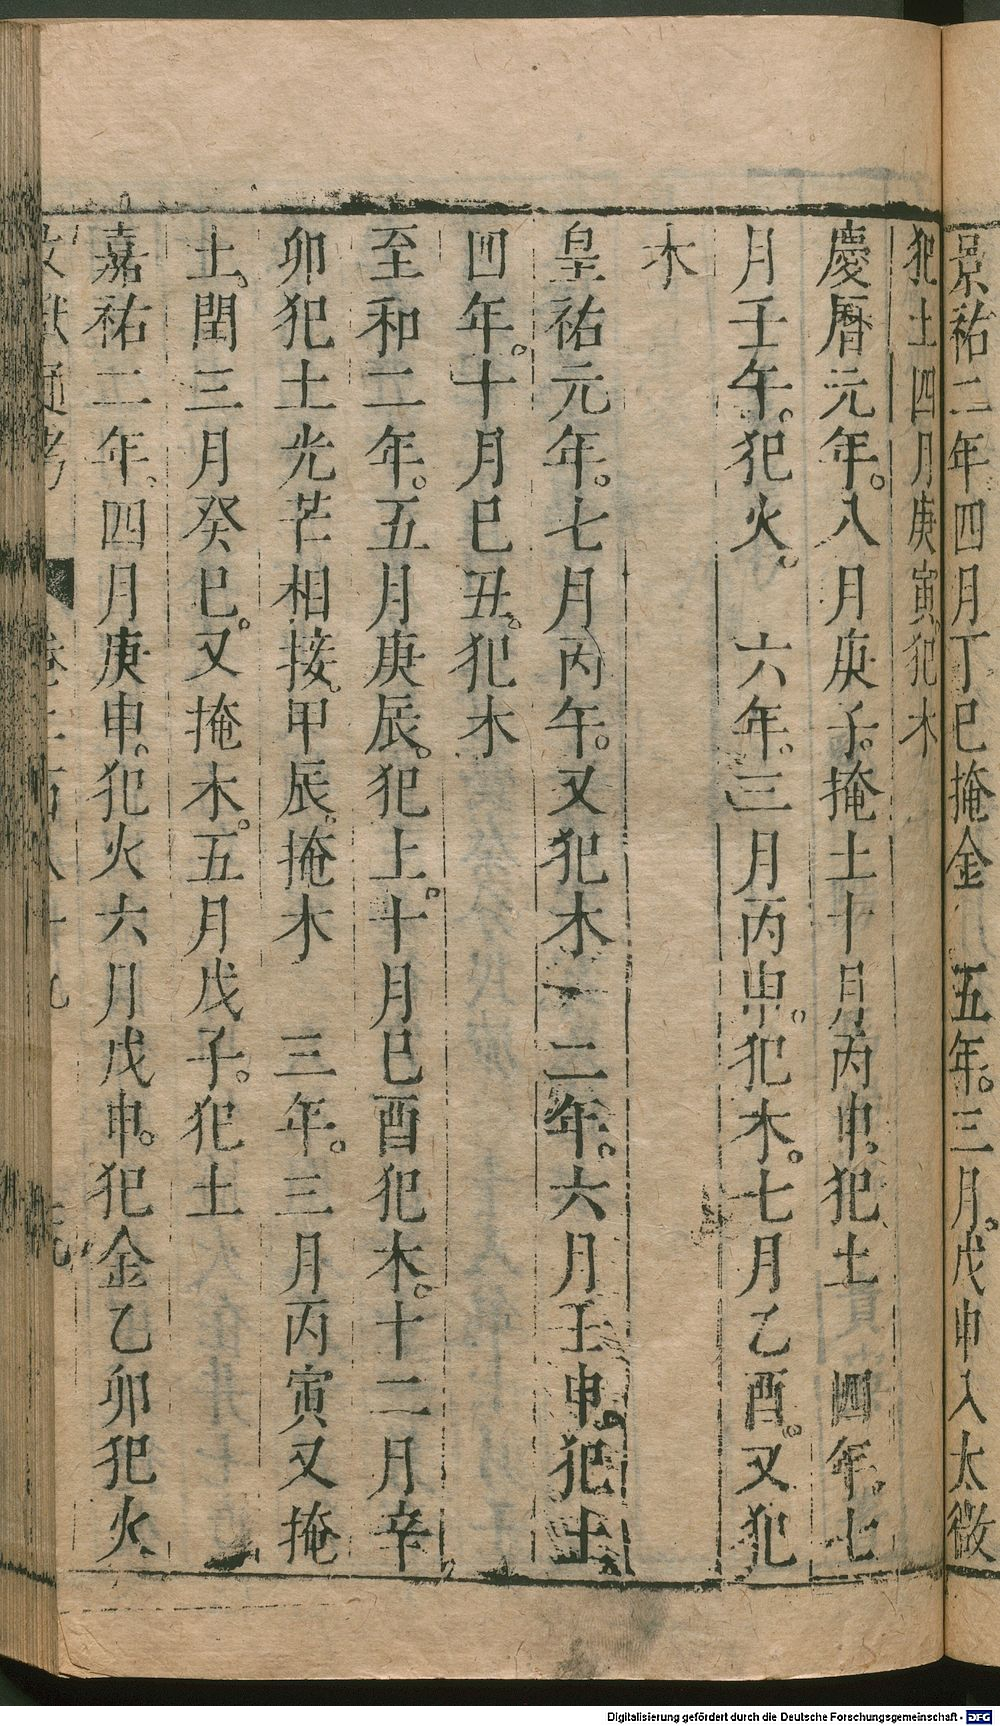 景祐二年四月丁巳掩金　五年。三月。戊申入太微
犯土四月庚寅。犯木
慶曆元年。八月庚子。掩土十月丙申。犯土　四年。七
月壬午。犯火。　六年。三月丙申。犯木。七月乙酉。又犯
木
皇祐元年。七月丙午。又犯木　二年。六月壬申。犯土
四年。十月巳丑。犯木
至和二年。五月庚辰。犯上。十月巳酉犯木。十二月辛
卯犯土光芒相接。甲辰。掩木　三年。三月丙寅又掩
土。閏三月癸巳。又掩木。五月戊子。犯土
嘉祐二年、四月庚申。犯火六月戊申。犯金乙卯犯火
Digitalisierung gefördert durch die Deutsche Forschungsgemeinschaft - DFG